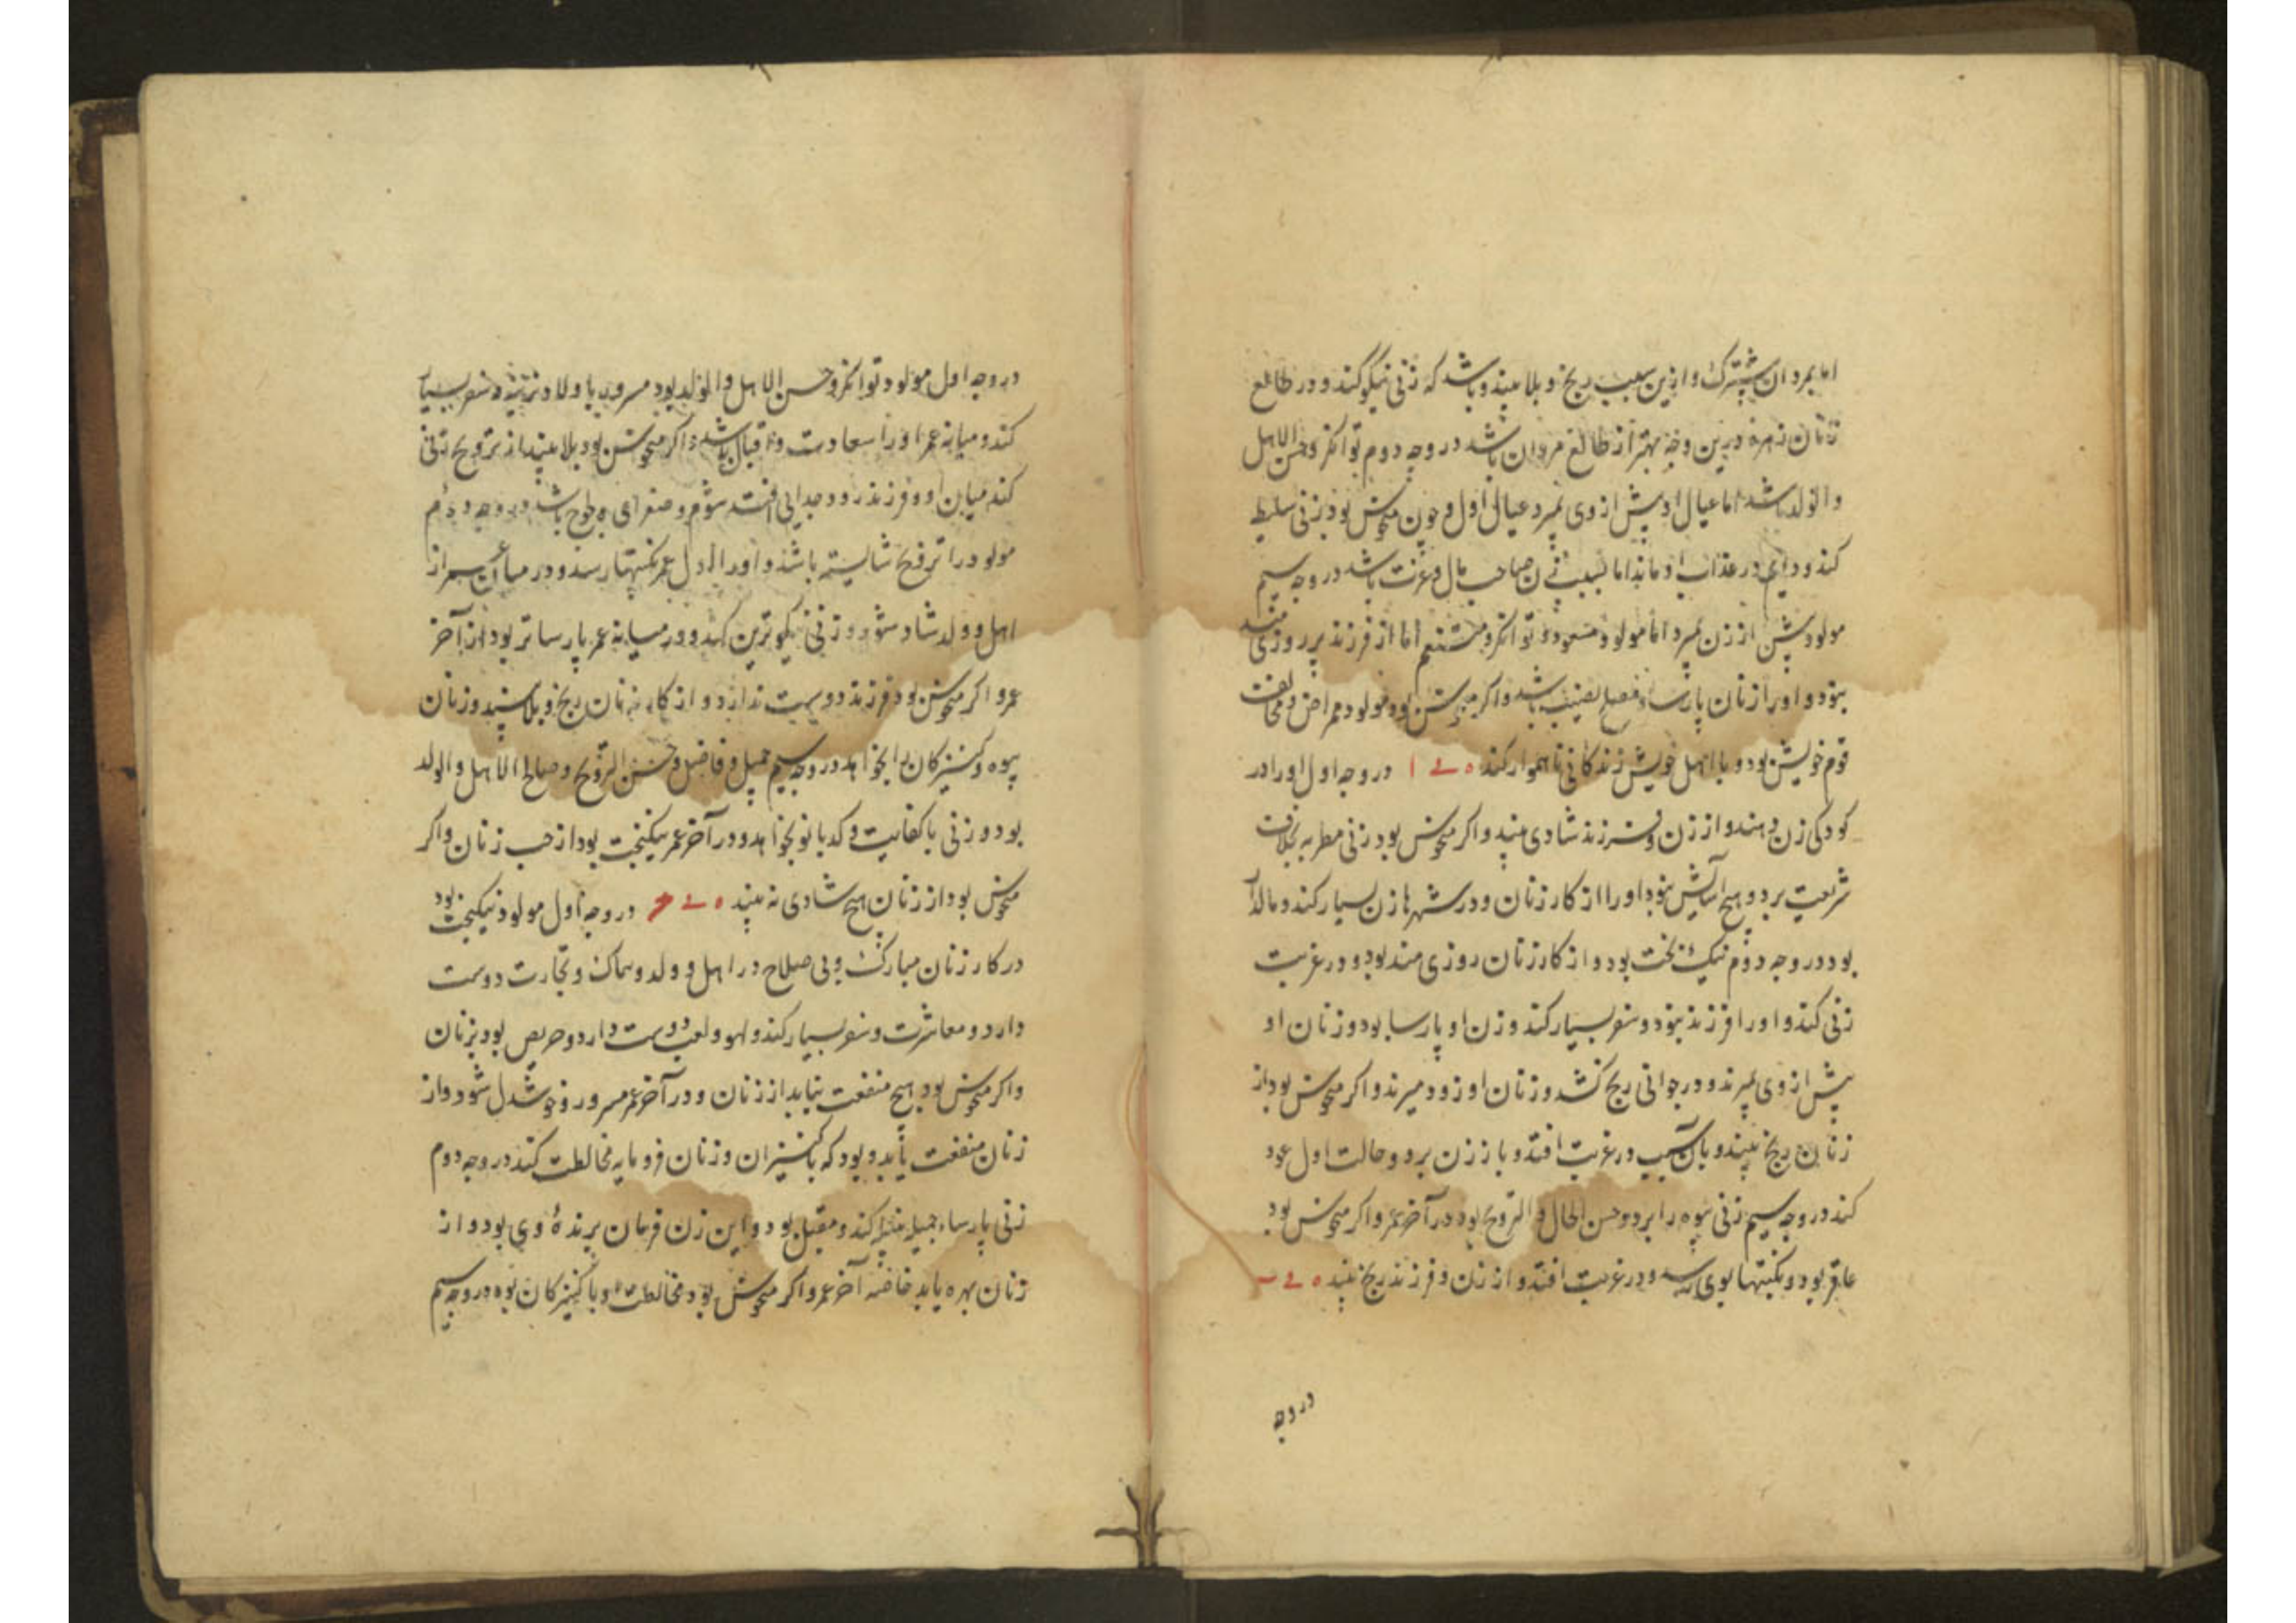 اما بمردان مشترک و ازین سبب رنج و بلا بیند و باشد که زنی نیکو کند و در طالع
زنان زهره درین وجه بهتر از طالع مردان باشد در وجه دوم توانکر و حسن الاهل
والولد باشد اما عیال او پیش از وی بمیرد عیال اول و چون منحوس بود زنی سلیطه
کند و دایم در عذاب او ماند اما بسبب زن صاحب مال و عزت باشد در وجه سیم
مولود پیش از زن بمیرد اما مولود مسعود و توانکر و متنعم اما از فرزند پر روزی مند
بود و او را زنان پارسا و فصیح باشد و اکر منحوس بود مولود ممراض و مخالفت
قوم خویش بود و با اهل خویش زندکانی ناهموار کند ے ا در وجه اول او را در
کودکی زن دهند و از زن و فرزند شادی بیند و اکر منحوس بود زنی مطربه بخلاف
شریعت برد و هیچ آسایش نبود او را از کار زنان و در شهرها زن بسیار کند و مالدار
بود در وجه دوم نیک بخت بود و از کار زنان روزی مند بود و در غربت
زنی کند و او را فرزند بود و سفر بسیار کند و زن او پارسا بود و زنان او
پیش از وی بمیرند و در جوانی رنج کشد و زنان او زود میرند و اکر منحوس بود از
زنان رنج بیند و بآن سبب در غربت افتد و باز زن برد و حالت اول عود
کند در وجه سیم زنی بیوه را برد و حسن الحال و التزویج بود در آخر عمر و اکر منحوس بود
عاقر بود و نکبتها بوی رسد و در غربت افتد و از زن و فرزند رنج بیند ے ب
در وجه
در وجه اول مولود توانکر و حسن الاهل والولد بود مسرور باولاد نرینه و سفر بسیار
کند و میانه عمر او را سعادت و اقبال باشد و اکر منحوس بود بلا بیند از تزویج تا
کند میان او و فرزند زود جدایی افتد شوم و باشد در وجه دوم
مولود را تزویج شایسته باشد و او را اول عمر نکبتها رسد و در میانه عمر از
اهل و ولد شاد شود و زنی نیکوترین کند و در میانه عمر پارساتر بود از آخر
عمر و اکر منحوس بود فرزند دوست ندارد و از کار زنان رنج و بلا بیند و زنان
بیوه و کنیزکان را بخواهد در وجه سیم جمیل و فاضل و حسن التزویج و صالح الاهل والولد
بود و زنی با کفایت و کدبانو بخواهد و در آخر عمر نیکبخت بود از حب زنان و اکر
منحوس بود از زنان هیچ شادی نه بیند ے ج در وجه اول مولود نیکبخت بود
در کار زنان مبارک و بی صلاح در اهل و ولد و سماک و تجارت دوست
دارد و معاشرت و سفر بسیار کند و لهو و لعب دوست دارد و حریص بود بزنان
و اکر منحوس بود هیچ منفعت نیابد از زنان و در آخر عمر مسرور و خوشدل شود و از
زنان منفعت یابد و بود که با کنیزان و زنان فرومایه مخالطت کند در وجه دوم
زنی پارسا و جمیله کند و مقبل بود و این زن فرمان برندهٔ وی بود و از
زنان بهره یابد خاصه آخر عمر و اکر منحوس بود مخالطت او با کنیزکان بود در وجه سیم